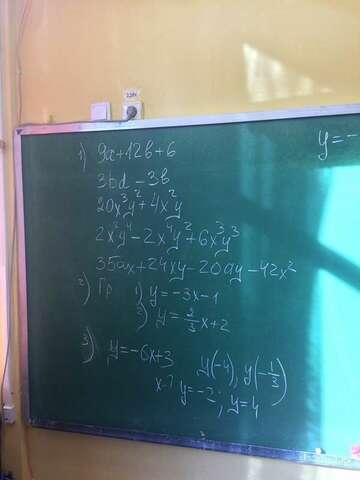 1) 9a+12b+6
3bd - 3b
20x³y²+4x²y
2x²y⁴-2x⁴y²+6x³y³
35ax+24xy-20ay-42x²
2) Гр 1) y=-3x-1
2) y=⅔x+2
3) y=-6x+3
y(-4), y(-⅓)
x-? y=-2; y=4
y=-